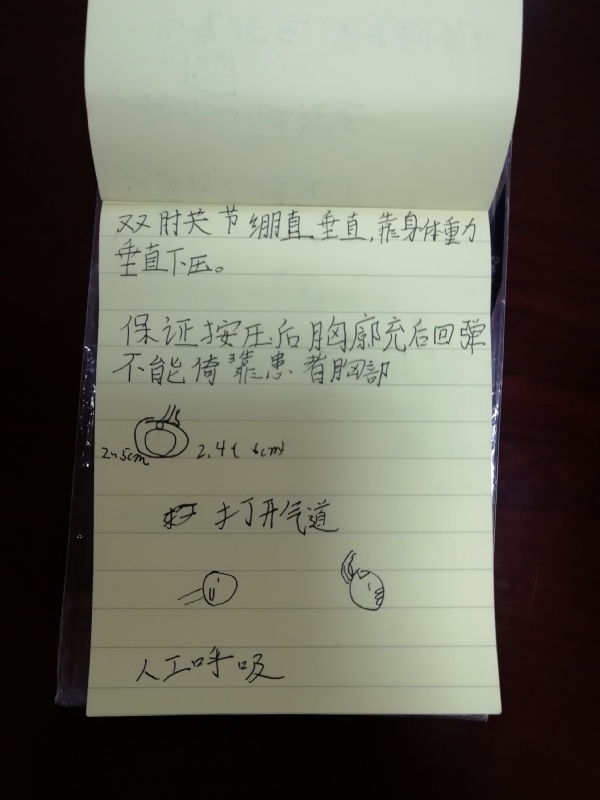 双肘关节绷直垂直,靠身体重力
垂直下压。
保证按压后胸廓充后回弹
不能倚靠患者胸部
打开气道
人工呼吸